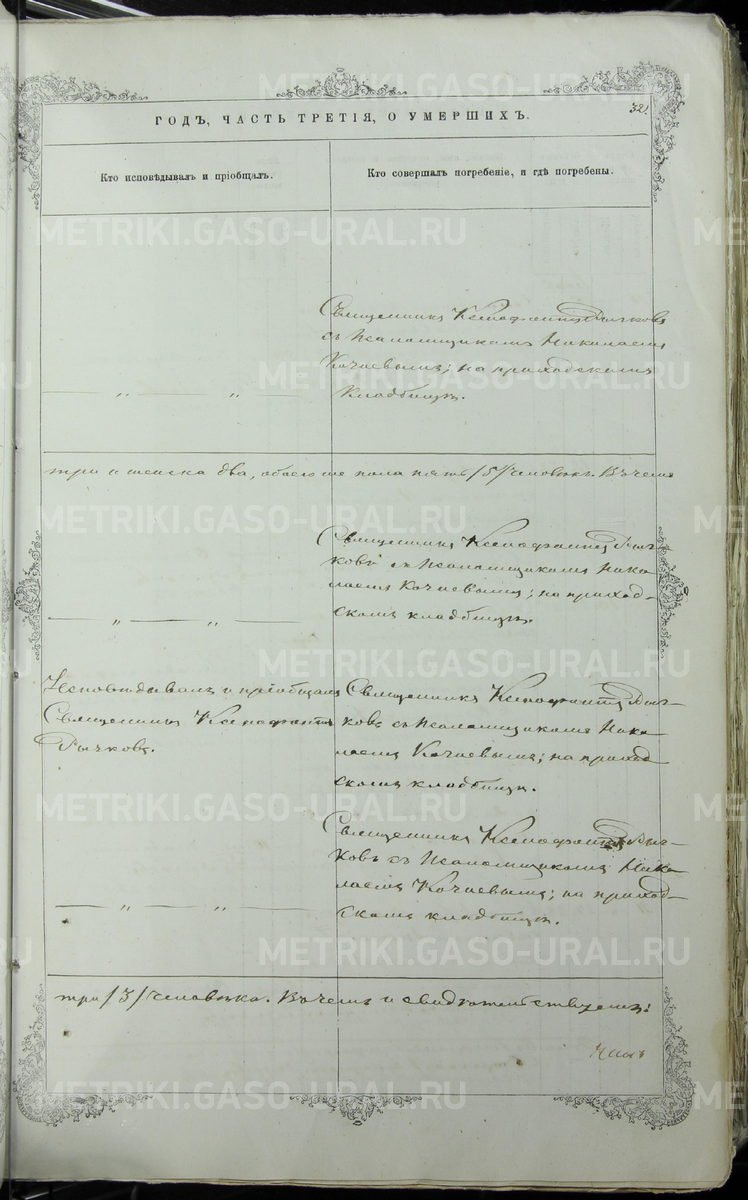 321
ГОДЪ, ЧАСТЬ ТРЕТІЯ, О УМЕРШИХЪ.
Кто исповѣдывалъ и пріобщалъ.
Кто совершалъ погребеніе, и гдѣ погребены.
Священникъ Ксенофонтъ Рычковъ
съ псаломщикомъ Николаемъ
Кочневымъ; на приходскомъ
— „ — „ —
кладбищѣ.
три и женска два, обоего же пола пять /5/ человѣкъ. Въ чемъ
Священникъ Ксенофонтъ Рыч-
ковъ съ псаломщикомъ Нико-
лаемъ Кочневымъ; на приход-
скомъ кладбищѣ.
— „ — „ —
Исповѣдывалъ и пріобщалъ
Священникъ Ксенофонтъ
Рычковъ.
Священникъ Ксенофонтъ Рыч-
ковъ съ псаломщикомъ Нико-
лаемъ Кочневымъ; на приход-
скомъ кладбищѣ.
Священникъ Ксенофонтъ Рыч-
ковъ съ псаломщикомъ Нико-
лаемъ Кочневымъ; на приход-
скомъ кладбищѣ.
— „ — „ —
три /3/ человѣка. Въ чемъ и свидѣтельствуемъ:
METRIKI.GASO-URAL.RU